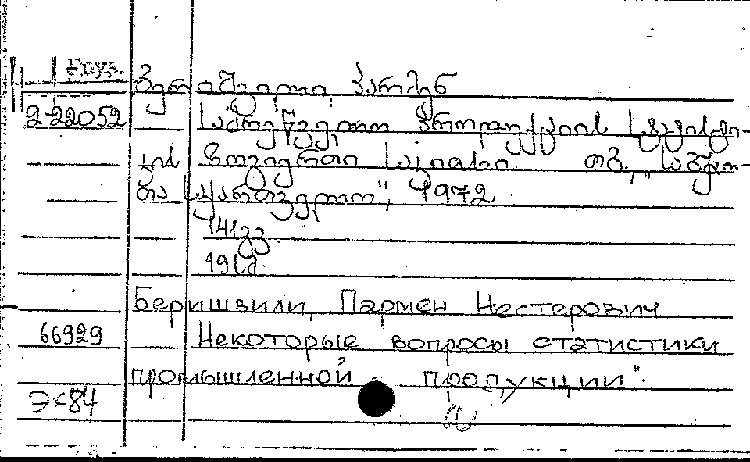 Груз.
ბერიშვილი, პარმენ
2-22052 სამრეწველო პროდუქციის სტატისტი-
კის ზოგიერთი საკითხი. თბ., „საბჭო-
თა საქართველო", 1972
141გვ
19სმ
Беришвили, Пармен Нестерович
66929 Некоторые вопросы статистики
промышленной продукции".
Э<84